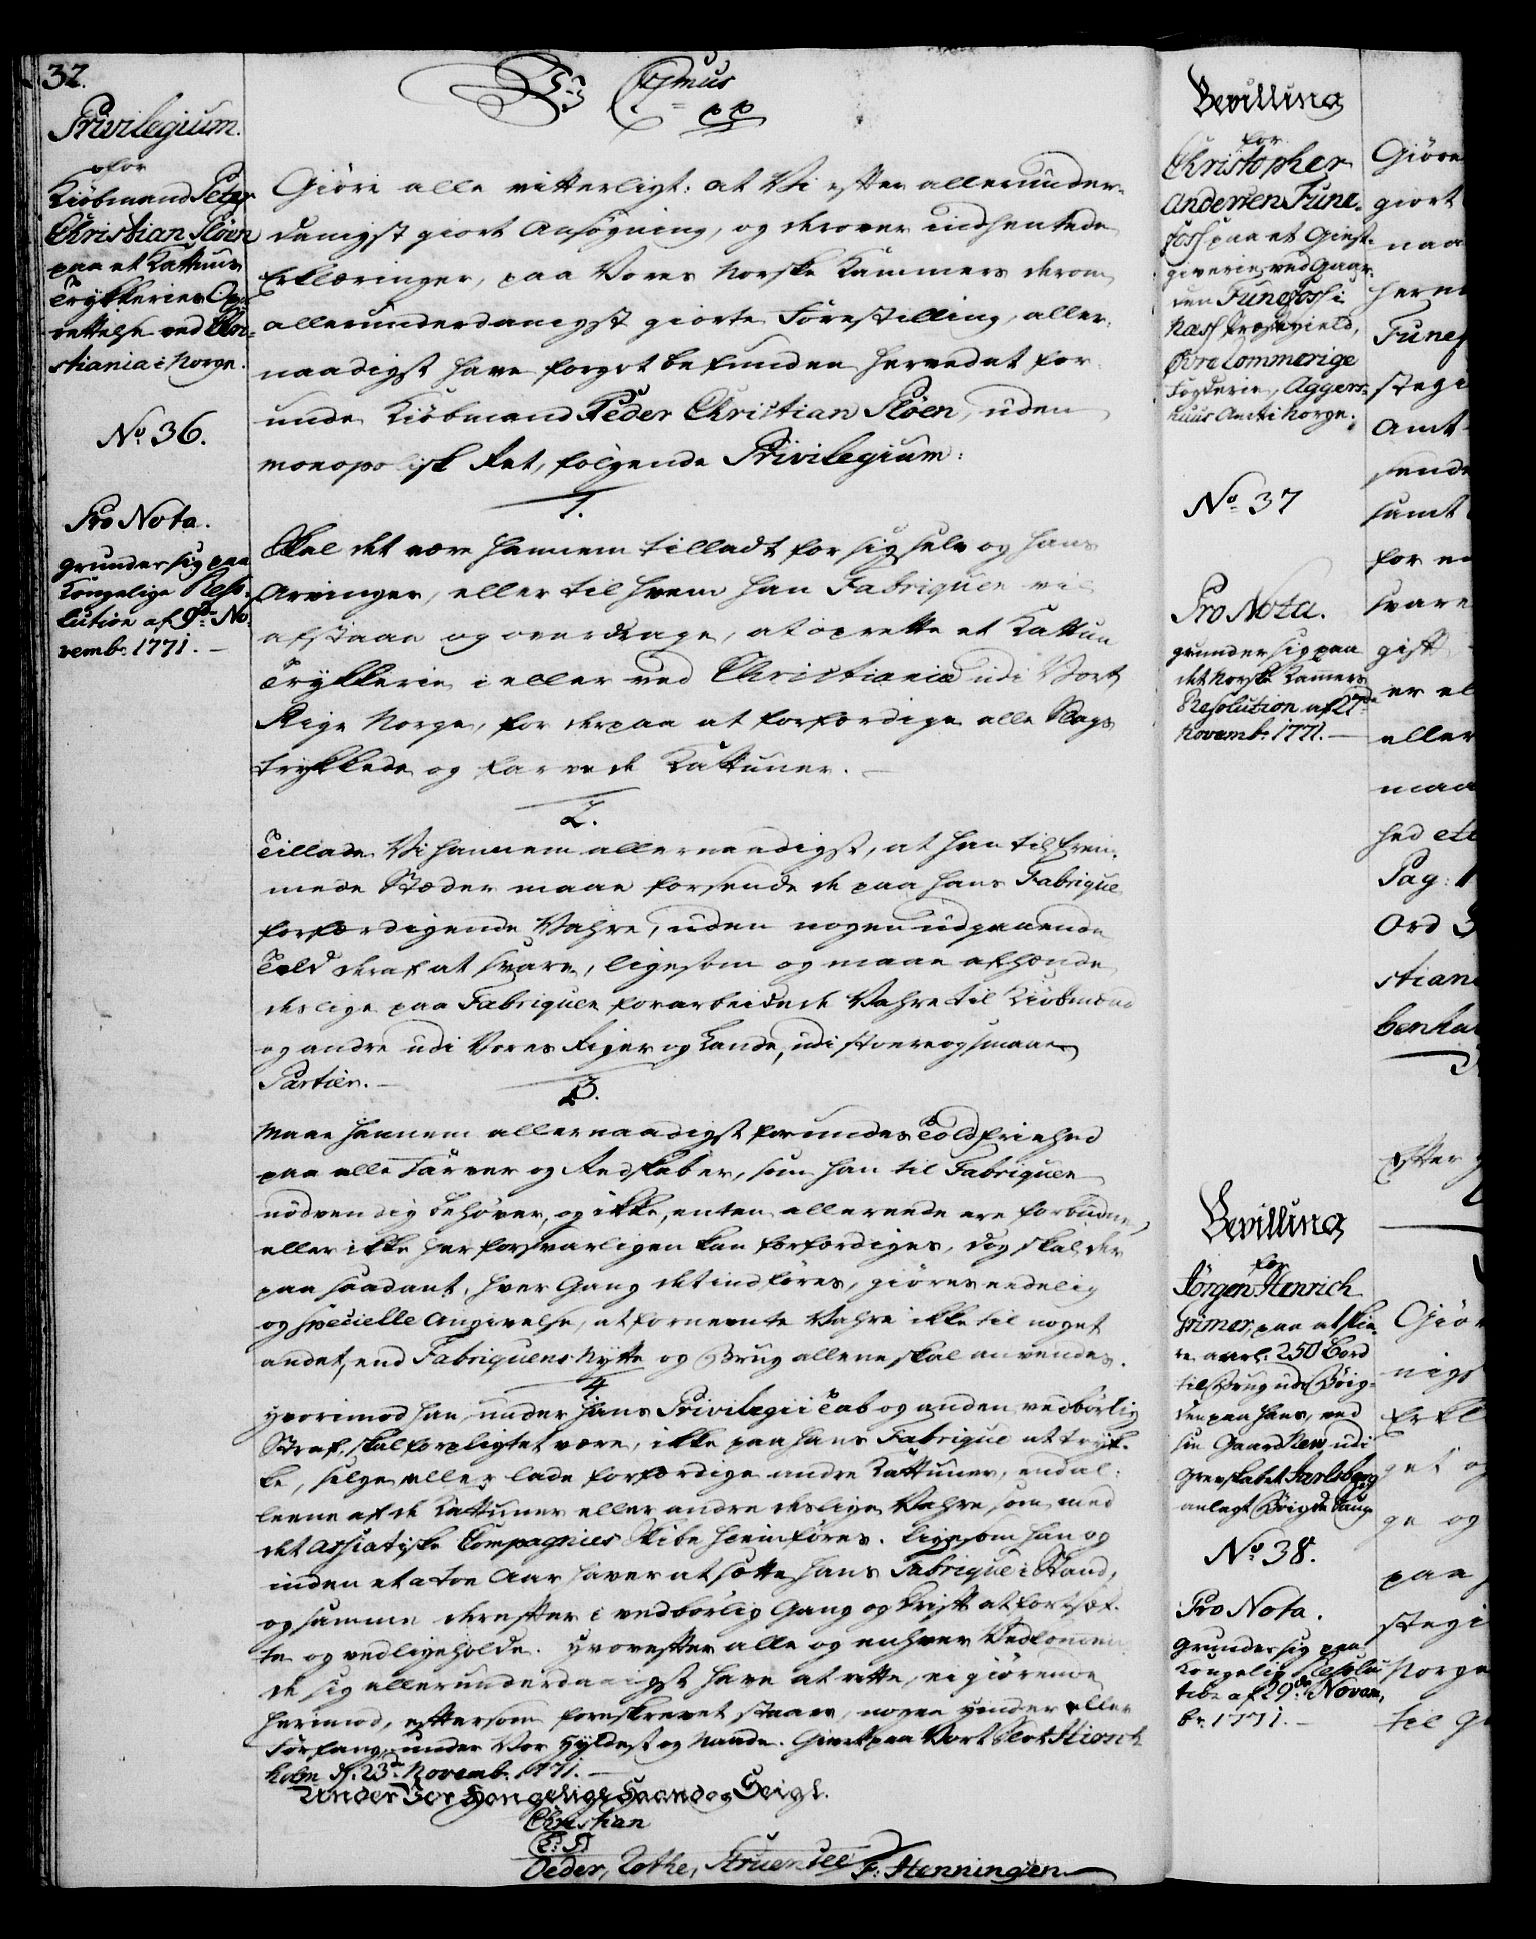 32.
Privilegium.
for
Kiöbmand Peter
Christian Ploën
paa et Kattuns
Trykkeries Op-
rettelse ved Chri-
stiania i Norge.
No. 36.
Pro Nota.
grunder sig paa
Kongelige Reso-
lution af 9de No-
vembr. 1771. —
Cr: 7mus
pp
Giöre alle vitterligt: at Vi efter allerunder-
danigst giort Ansøgning, og derover indhentede
Erklæringer, paa Vores Norske Kammers derom
allerunderdanigst giorte Forestilling, aller-
naadigst have forgot befunden herved at for-
unde Kiöbmand Peder Christian Ploën, uden
monopolisk Ret, følgende Privilegium:
1.
Skal det være hannem tilladt for sig selv og hans
Arvinger, eller til hvem han Fabriquen vil
afstaae og overdrage, at oprette et Kattun
Trykkerie i eller ved Christiania udi Vort
Rige Norge, for derpaa at forfærdige alle Slags
trykkede og farvede Kattuner. —
2.
Tillade Vi hannem allernaadigst, at han til frem-
mede Stæder maae forsende de paa hans Fabrique
forfærdigende Vahre, uden nogen udgaaende
Told deraf at svare, ligesom og maae afhænde
deslige paa Fabriquen forarbeidede Vahre til Kiöbmænd
og andre udi Vores Riger og Lande, udi store og smaae
Partier. —
3.
Maae hannem allernaadigst forundes Toldfriehed
paa alle Farver og Redskaber, som han til Fabriquen
nødvendig behøver, og ikke, enten allerede ere forbudne,
eller ikke her forsvarligen kan forfærdiges, dog skal der
paa saadant, hver Gang det indføres, giøres eedelig
og specielle Angivelse, at fornevnte Vahre ikke til noget
andet, end Fabriquens Nytte og Brug allene skal anvendes.
4.
Hvorimod han, under hans Privilegii Tab og anden vedbørlig
Straf, skal forpligtet være, ikke paa hans Fabrique at tryk-
ke, selge, eller lade forfærdige andre Kattuner, end al-
leene af de Kattuner eller andre deslige Vahre, som med
det Assiatiske Compagnies Skibe hiemføres. Ligesom han og
inden et a toe Aar haver at sætte hans Fabrique i Stand,
og samme derefter i vedbørlig Gang og Drift at fortsæt-
te og vedligeholde. Hvorefter alle og enhver Vedkommen-
de sig allerunderdanigst have at rette, ei giørende
herimod, eftersom foreskrevet staaer, nogen Hinder eller
Forfang, under Vor Hyldest og Naade. Givet paa Vort Slot Hirsch-
holm d. 23de Novemb: 1771. —
Under Vor Kongelige Haand og Seigl.
Christian
(L: S)
Oeder, Zothe, Struensee F: Henningen
Bevilling
for
Christopher
Andersen Fune-
foss paa et Giest-
giverie, ved Gaar-
den Funefoss i
Næss Præstegield,
Øvre Rommerige
Fogderie, Aggers-
huus Amt i Norge.
No. 37
Pro Nota.
grunder sig paa
det Norske Kammers
Resolution af 27de
Novemb: 1771. —
Bevilling
for
Jörgen Henrich
Grimer, paa at skiæ-
re aarl: 250 Bord
til Brug ved Böig-
den paa hans, ved
sin Gaard Kew, udi
Grevskabet Jarlsberg
anlegt Böigde Saug.
No. 38.
Pro Nota.
Grunder sig paa
Kongelig Resolu-
tion af 29de Novem-
br. 1771. —
Giøre
giort
naa
herm
Funef
stegi
Amt
sende
samt
for en
svare
gift
er el
eller
maa
hed
Pag: 1
Ord 3
stian
benha
Efter
Giør
nigs
Erkl
get og
ge og
paa
stegi
Norge
til